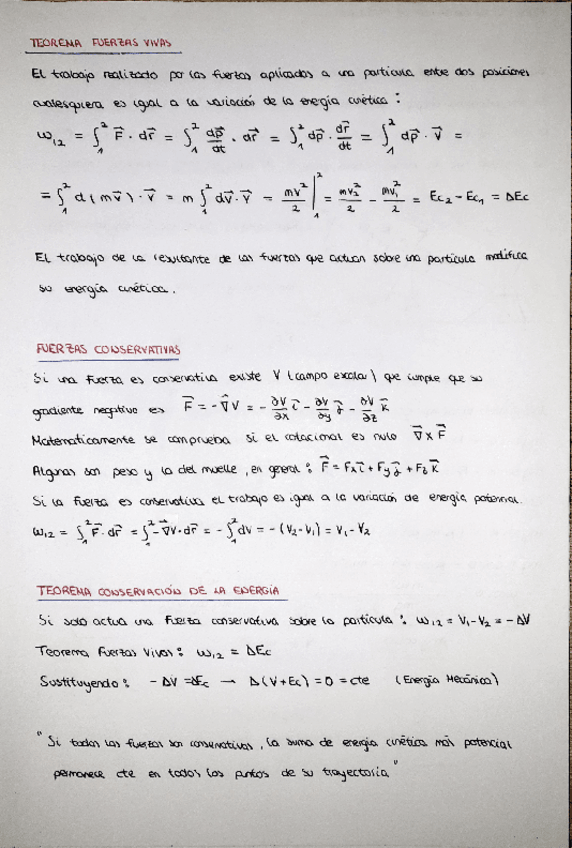 TEOREMA FUERZAS VIVAS
El trabajo realizado por las fuerzas aplicadas a una partícula entre dos posiciones
cualesquiera es igual a la variación de la energía cinética :
W₁₂ = ∫₁² F⃗ · dr⃗ = ∫₁² dp⃗/dt · dr⃗ = ∫₁² dp⃗ · dr⃗/dt = ∫₁² dp⃗ · v⃗ =
= ∫₁² d(mv⃗) · v⃗ = m ∫₁² dv⃗ · v⃗ = mv²/2 |₁² = mv₂²/2 - mv₁²/2 = Ec₂ - Ec₁ = ΔEc
El trabajo de la resultante de las fuerzas que actuan sobre una partícula modifica
su energía cinética.
FUERZAS CONSERVATIVAS
Si una Fuerza es conservativa existe V (campo escalar) que cumple que su
gradiente negativo es F⃗ = -∇⃗V = -∂V/∂x i⃗ - ∂V/∂y j⃗ - ∂V/∂z k⃗
Matematicamente se comprueba si el rotacional es nulo ∇⃗ x F⃗
Algunas son peso y la del muelle, en general : F⃗ = Fx i⃗ + Fy j⃗ + Fz k⃗
Si la Fuerza es conservativa el trabajo es igual a la variación de energía potencial.
W₁₂ = ∫₁² F⃗ · dr⃗ = ∫₁² -∇⃗V · dr⃗ = -∫₁² dV = -(V₂-V₁) = V₁ - V₂
TEOREMA CONSERVACIÓN DE LA ENERGÍA
Si solo actua una Fuerza conservativa sobre la partícula : W₁₂ = V₁ - V₂ = -ΔV
Teorema Fuerzas Vivas : W₁₂ = ΔEc
Sustituyendo : -ΔV = ΔEc → Δ(V+Ec) = 0 = cte (Energía Mecánica)
"Si todas las fuerzas son conservativas, la suma de energía cinética más potencial
permanece cte en todos los puntos de su trayectoria"